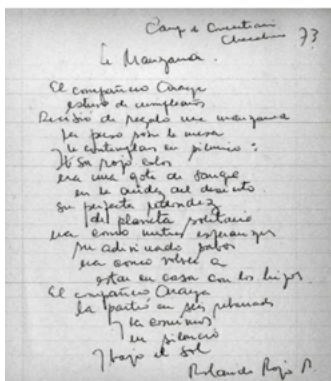 Camp de Concentración
Chacabuco 73
La Manzana.
El compañero Araya
estuvo de cumpleaños
Recibió de regalo una manzana
la puso sobre la mesa
y la contemplaron en silencio:
Su rojo color
era una gota de sangre
en la aridez del desierto
su perfecta redondez
de planeta solitario
era como nuestras esperanzas
su adivinado sabor
era como volver a
estar en casa con los hijos
El compañero Araya
la partió en seis rebanadas
y la comimos
en silencio
bajo el sol
Rolando Rojo R.